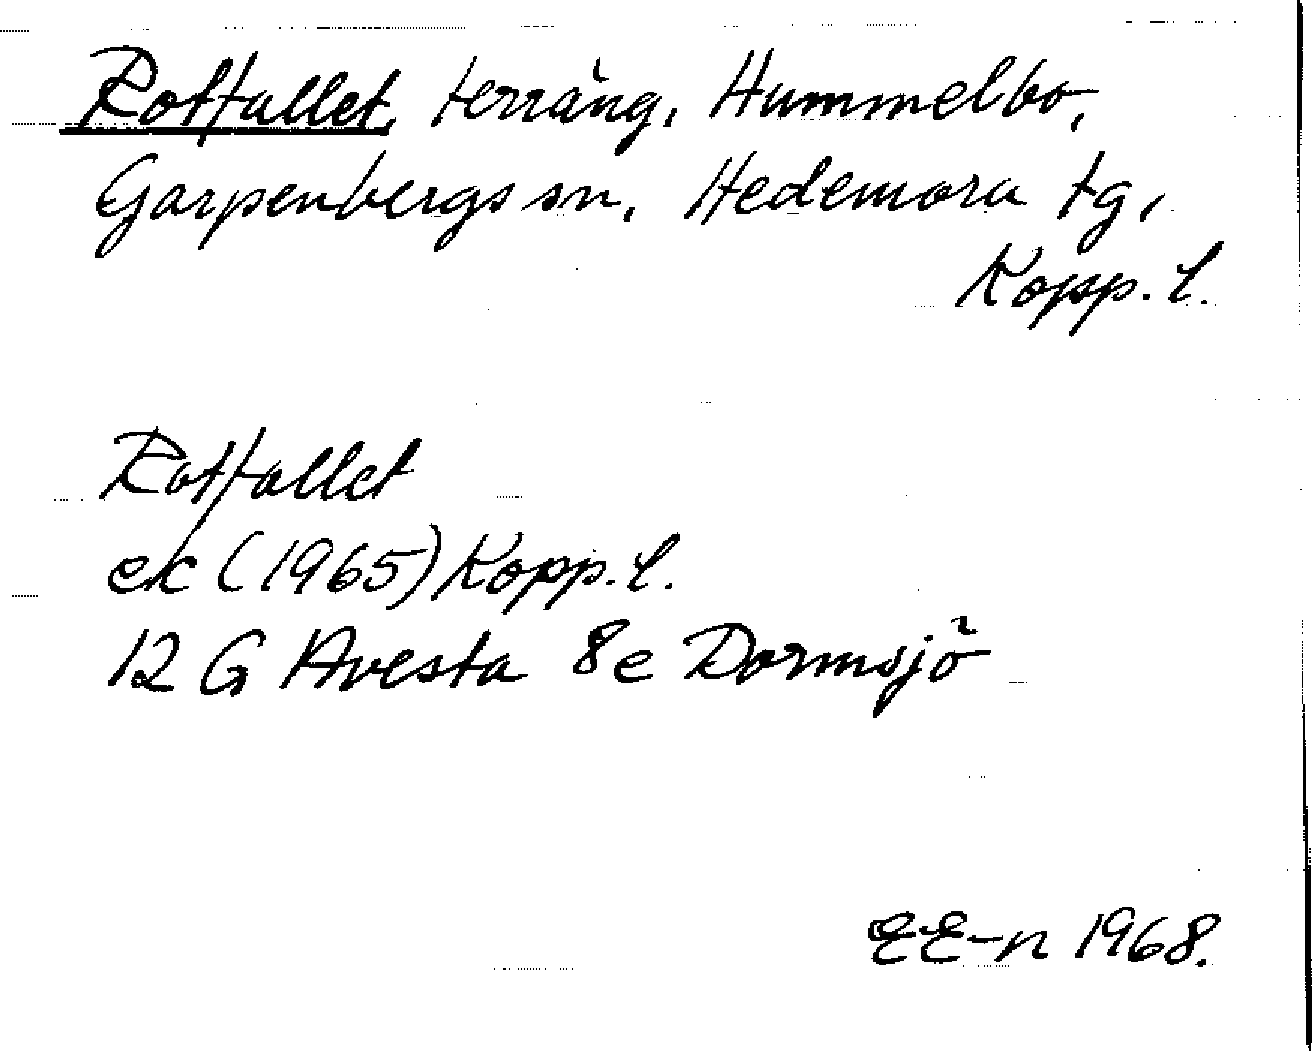 Rotfallet, terräng, Hummelbo,
Garpenbergs sn, Hedemora tg,
Kopp. l.
Rotfallet
ek (1965) Kopp. l.
12 G Avesta 8e Dormsjö
EE-n 1968.